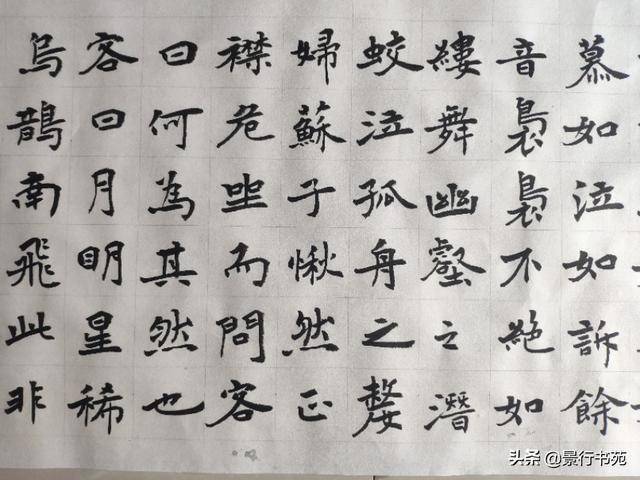 慕如泣如訴餘
音裊裊不絕如
縷舞幽壑之潛
蛟泣孤舟之嫠
婦蘇子愀然正
襟危坐而問客
曰何為其然也
客曰月明星稀
烏鵲南飛此非
头条 @景行书苑